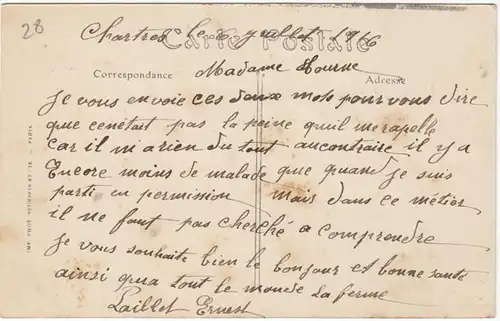 28
Chartres le 6 Juillet 1916
Carte Postale
Madame
Correspondance
Adresse
Je vous envoie ces deux mots pour vous dire
que cenetait pas la peine quil me rapelle
car il m'a rien du tout aucontraire il y a
Encore moins de malade que quand je suis
parti en permission mais dans ce métier
il ne faut pas cherché a comprendre
Je vous souhaite bien le bonjour et bonne santé
ainsi qua tout le monde La ferme
Laillet Ernest
PARIS